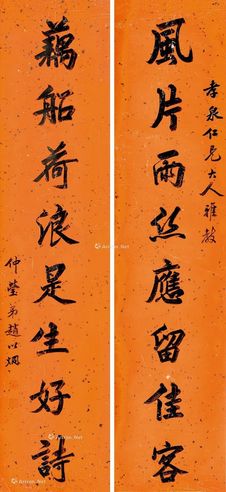 孝泉仁兄大人雅教
風片雨丝應留佳客
藕船荷浪是生好詩
仲瑩弟趙以炯